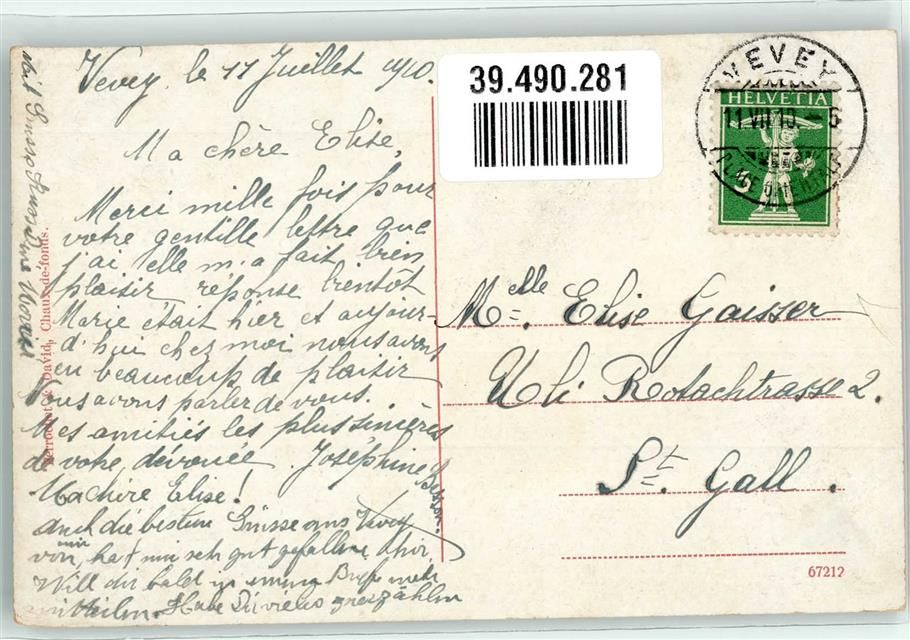 Vevey le 11 Juillet 1910.
Ma chère Elise,
Merci mille fois pour
votre gentille lettre que
j'ai elle m'a fait bien
plaisir réponse bientôt
Marie était hier et aujour-
d'hui chez moi nous avons
eu beaucoup de plaisir
Nous avons parler de vous.
Mes amitiés les plus sinières
de votre dévouée Joséphine
Ma chère Elise!
auch die besten Grüsse aus Vevey
von mir, hat mir seh gut gefallen hier.
Will dir bald in einem Briefe mehr
mitteilen. Habe Dir vieles zu erzählen
Perrochet & David, Chaux-de-fonds.
39.490.281
VEVEY
11.VII.10 - 6
HELVETIA
5
Melle. Elise Gaisser
Uli Rotachtrasse 2.
St. Gall.
67212